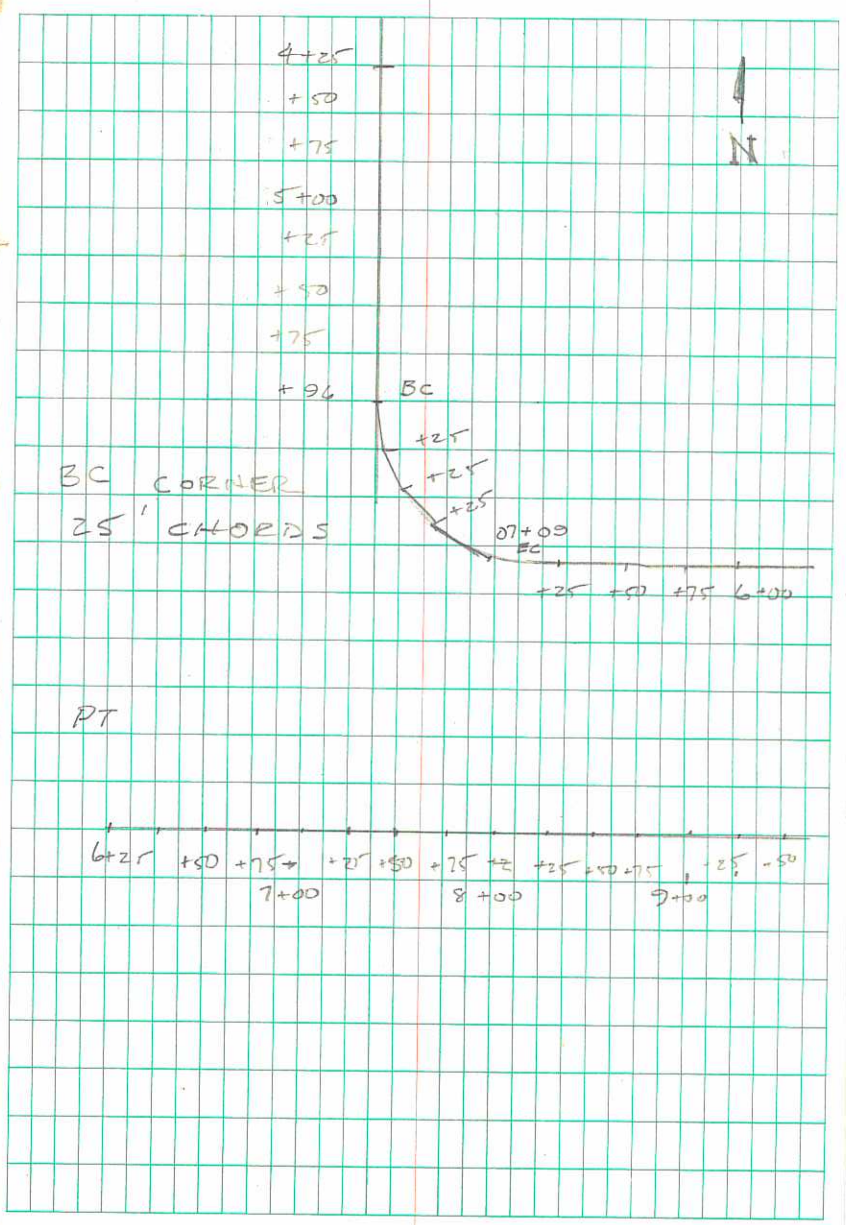 4+25
+50
N
+75
5+00
+25
+50
+75
+96 BC
+25
BC CORNER +25
25' CHORDS +25
07+09
EC
+25 +50 +75 6+00
PT
6+25 +50 +75 +25 +50 +75 +25 +50 +75 +25 +50
7+00 8+00 9+00